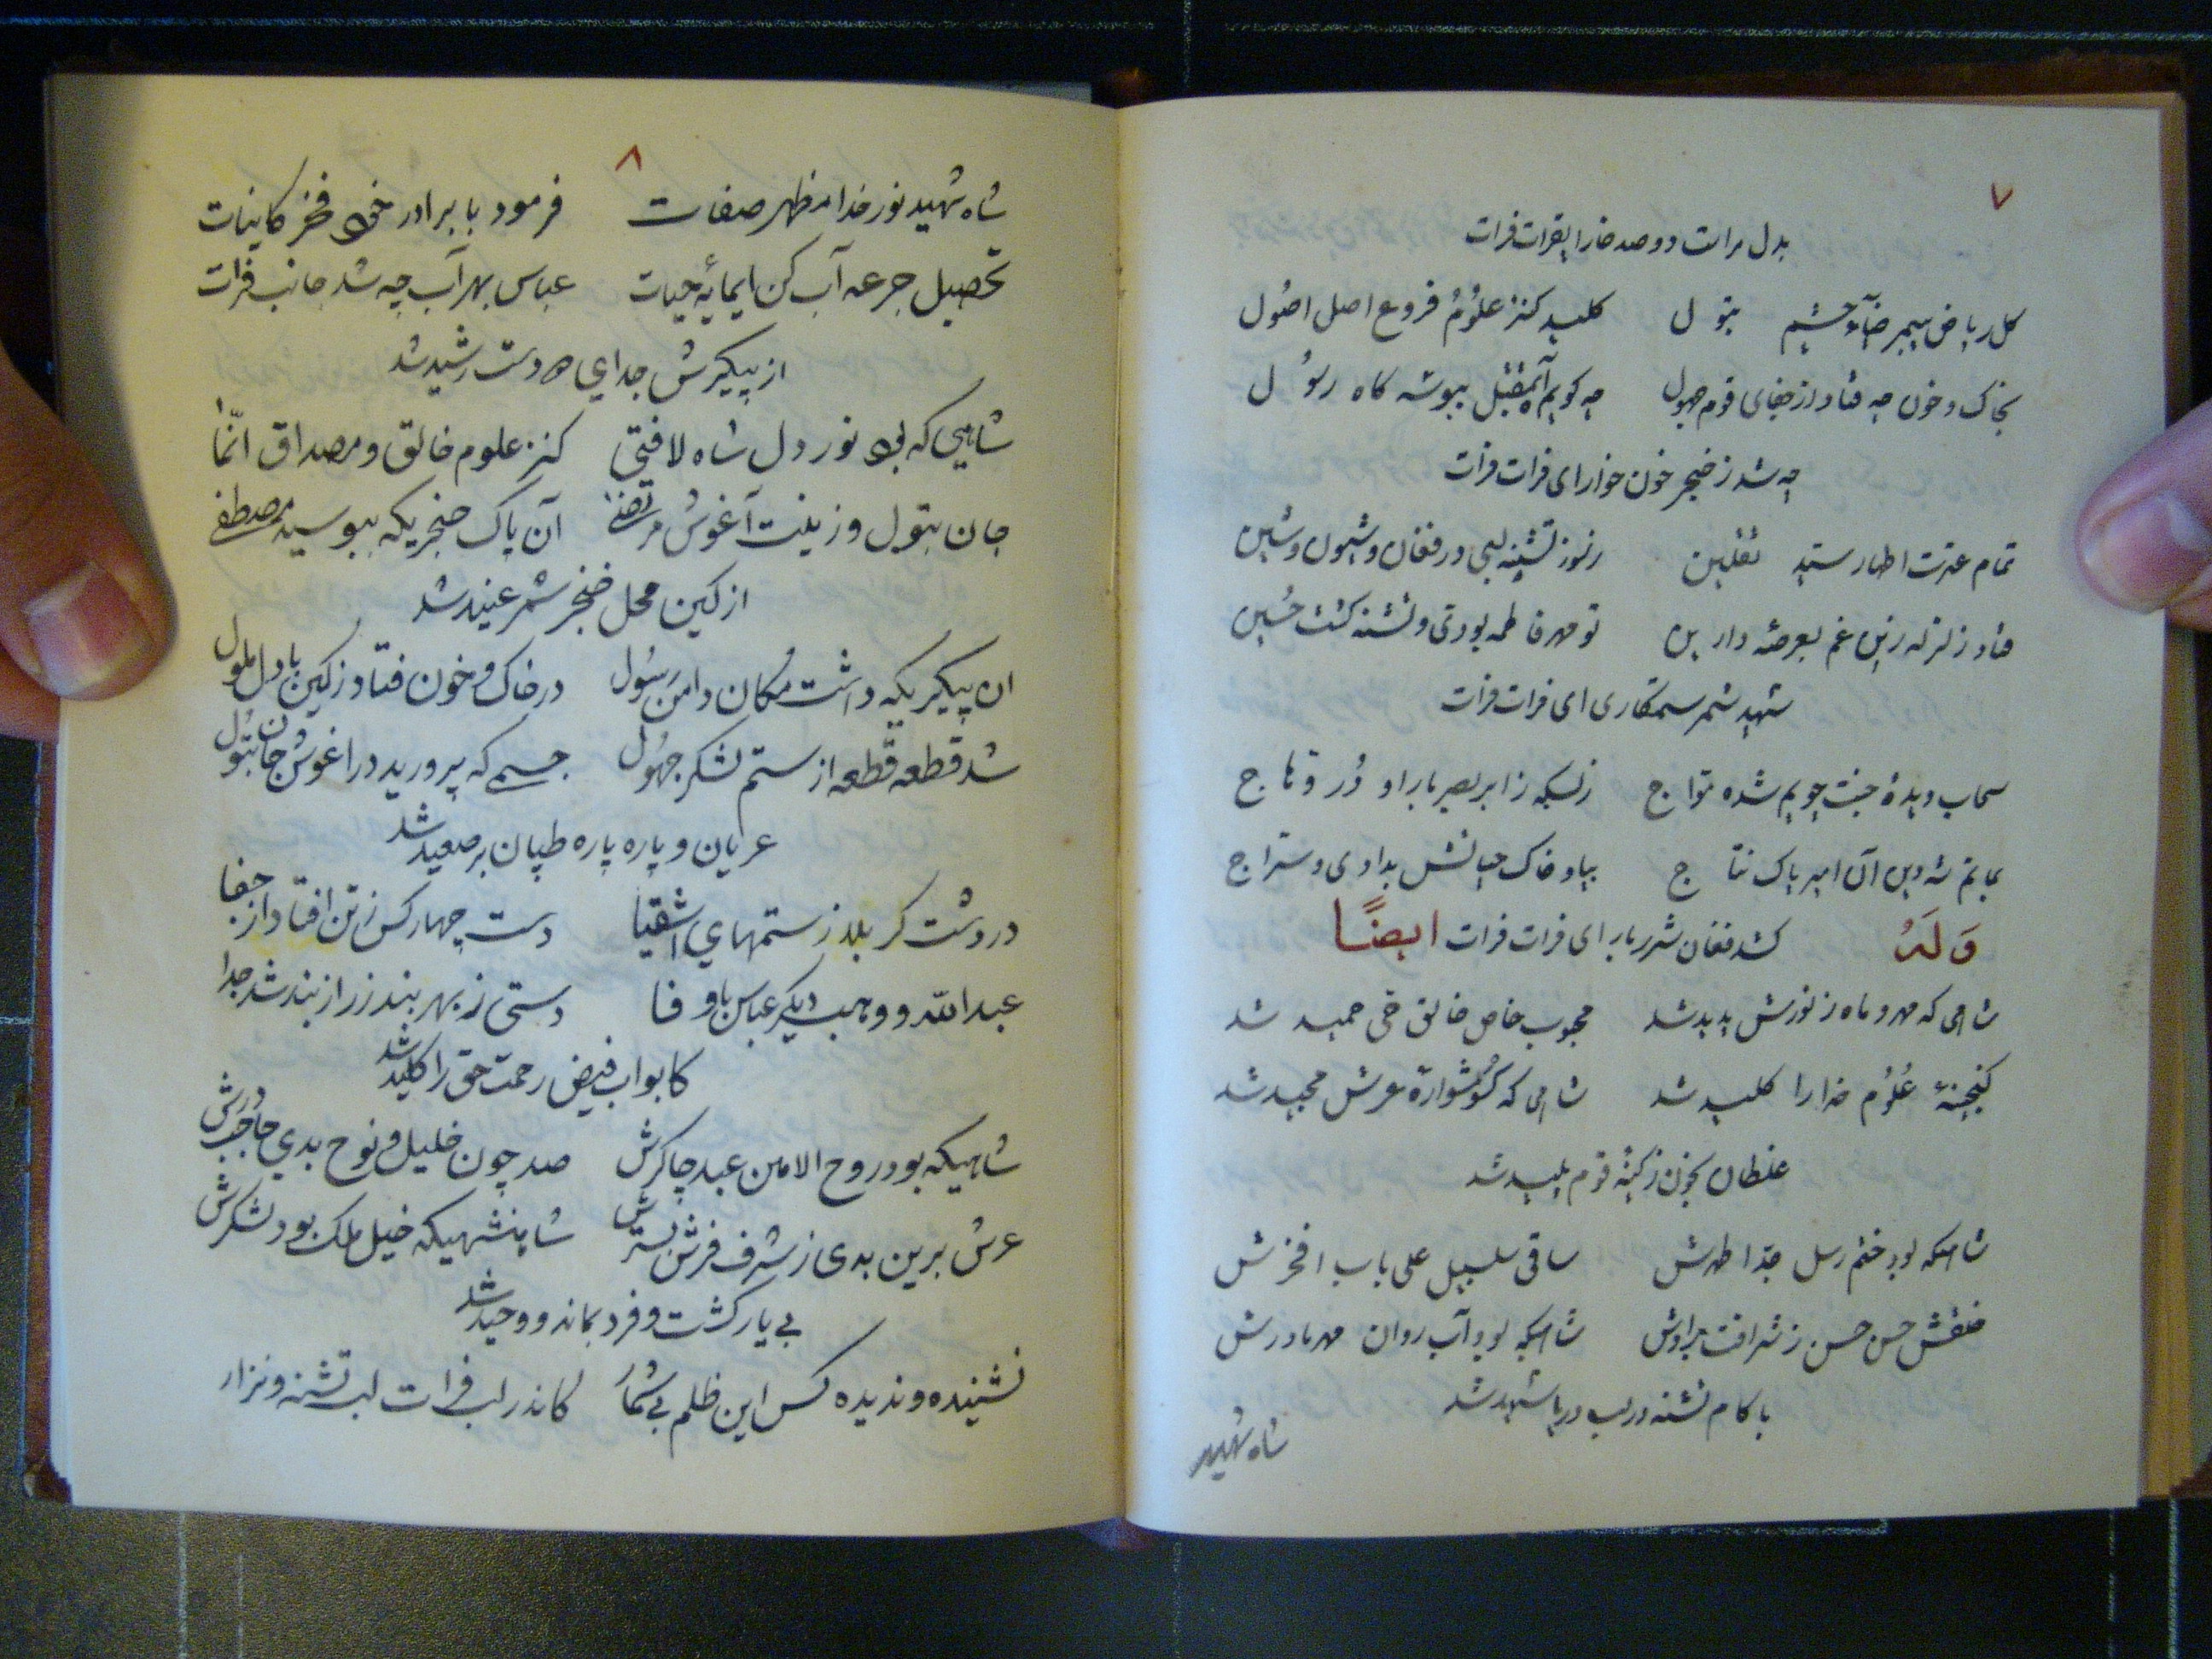 ۷
بدل مراست دو صد خار ای فرات فرات
کل ریاض پیمبر ضیآء چشم بتول کلید کنز علوُمُ فروع اصل اصُول
بخاک و خون چه فتاد از جفای قوم جهول چه کویم آنمقتل ببوسه کاه رسُول
چه شد ز خنجر خون خوار ای فرات فرات
تمام عترت اطهار سیّد ثقلین ز سوز تشنه لبی در فغان و شیون و شین
فتاد زلزله زین غم بعرصهٔ دارین تو مهر فاطمه بودی و تشنه کشت حُسین
شهید شمر ستمکار ای فرات فرات
سحاب دیدهٔ جنت چویم شده موّاج زبسکه ز ابر بصر بارد او دُر و تاج
بماتم شه دین آن امیر پاک نتاج بباد خاک جهانش بدادی و تاراج
وَلَهُ کشد فغان شرر بار ای فرات فرات ایضاً
شاهی که مهر و ماه ز نورش پدید شد محبوب خاص خالق حی حمید شد
کنجینهٔ عُلوُم خدا را کلید شد شاهی که کوُشوارهٔ عرش مجید شد
غلطان بخون ز کینهٔ قوم پلید شد
شاهیکه بود ختم رسل جدّ اطهرش ساقی سلسبیل علی باب افخرش
خلقش حسن حسن ز شرافت برادرش شاهیکه بود آب روان مهر مادرش
با کام تشنه در لب دریا شهید شد
شاه شهید
۸
شاه شهید نور خدا مظهر صفات فرمود با برادر خود فخر کاینات
تحصیل جرعه آب کن ایمایهٔ حیات عباس بهر آب چه شد جانب فرات
از پیکرش جدا دو دست رشید شد
شاهی که بود نور دل شاه لافتی کنز علوم خالق و مصداق انّما
جان بتول و زینت آغوش مرتضیٰ آن پاک حنجریکه ببوسید مصطفے
از کین محل خنجر شمر عنید شد
ان پیکریکه داشت مُکان دامن رَسُول در خاک و خون فتاد ز کین با دل ملول
شد قطعه قطعه از ستم لشکر جهُول جسمی که پرورید در اغوش جان بتوُل
عریان و پاره پاره طپان بر صعید شد
در دشت کربلا ز ستمهای اشقیا دست چهار کس ز تن افتاد از جفا
عبدالله و وهب دیکر عباس با وفا دستی ز بهر بند زر از بند شد جدا
کابواب فیض رحمت حق را کلید شد
شاهیکه بود روح الامین عبد چاکرش صد چون خلیل و نوح بدی حاجب درش
عرش برین بدی ز شرف فرش بسترش شاهنشهیکه خیل ملک بود لشکرش
بی یار کشت و فرد بماند و وحید شد
نشنیده و ندیده کس این ظلم بی شمُار کاندر لب فرات لب تشنه و نزار